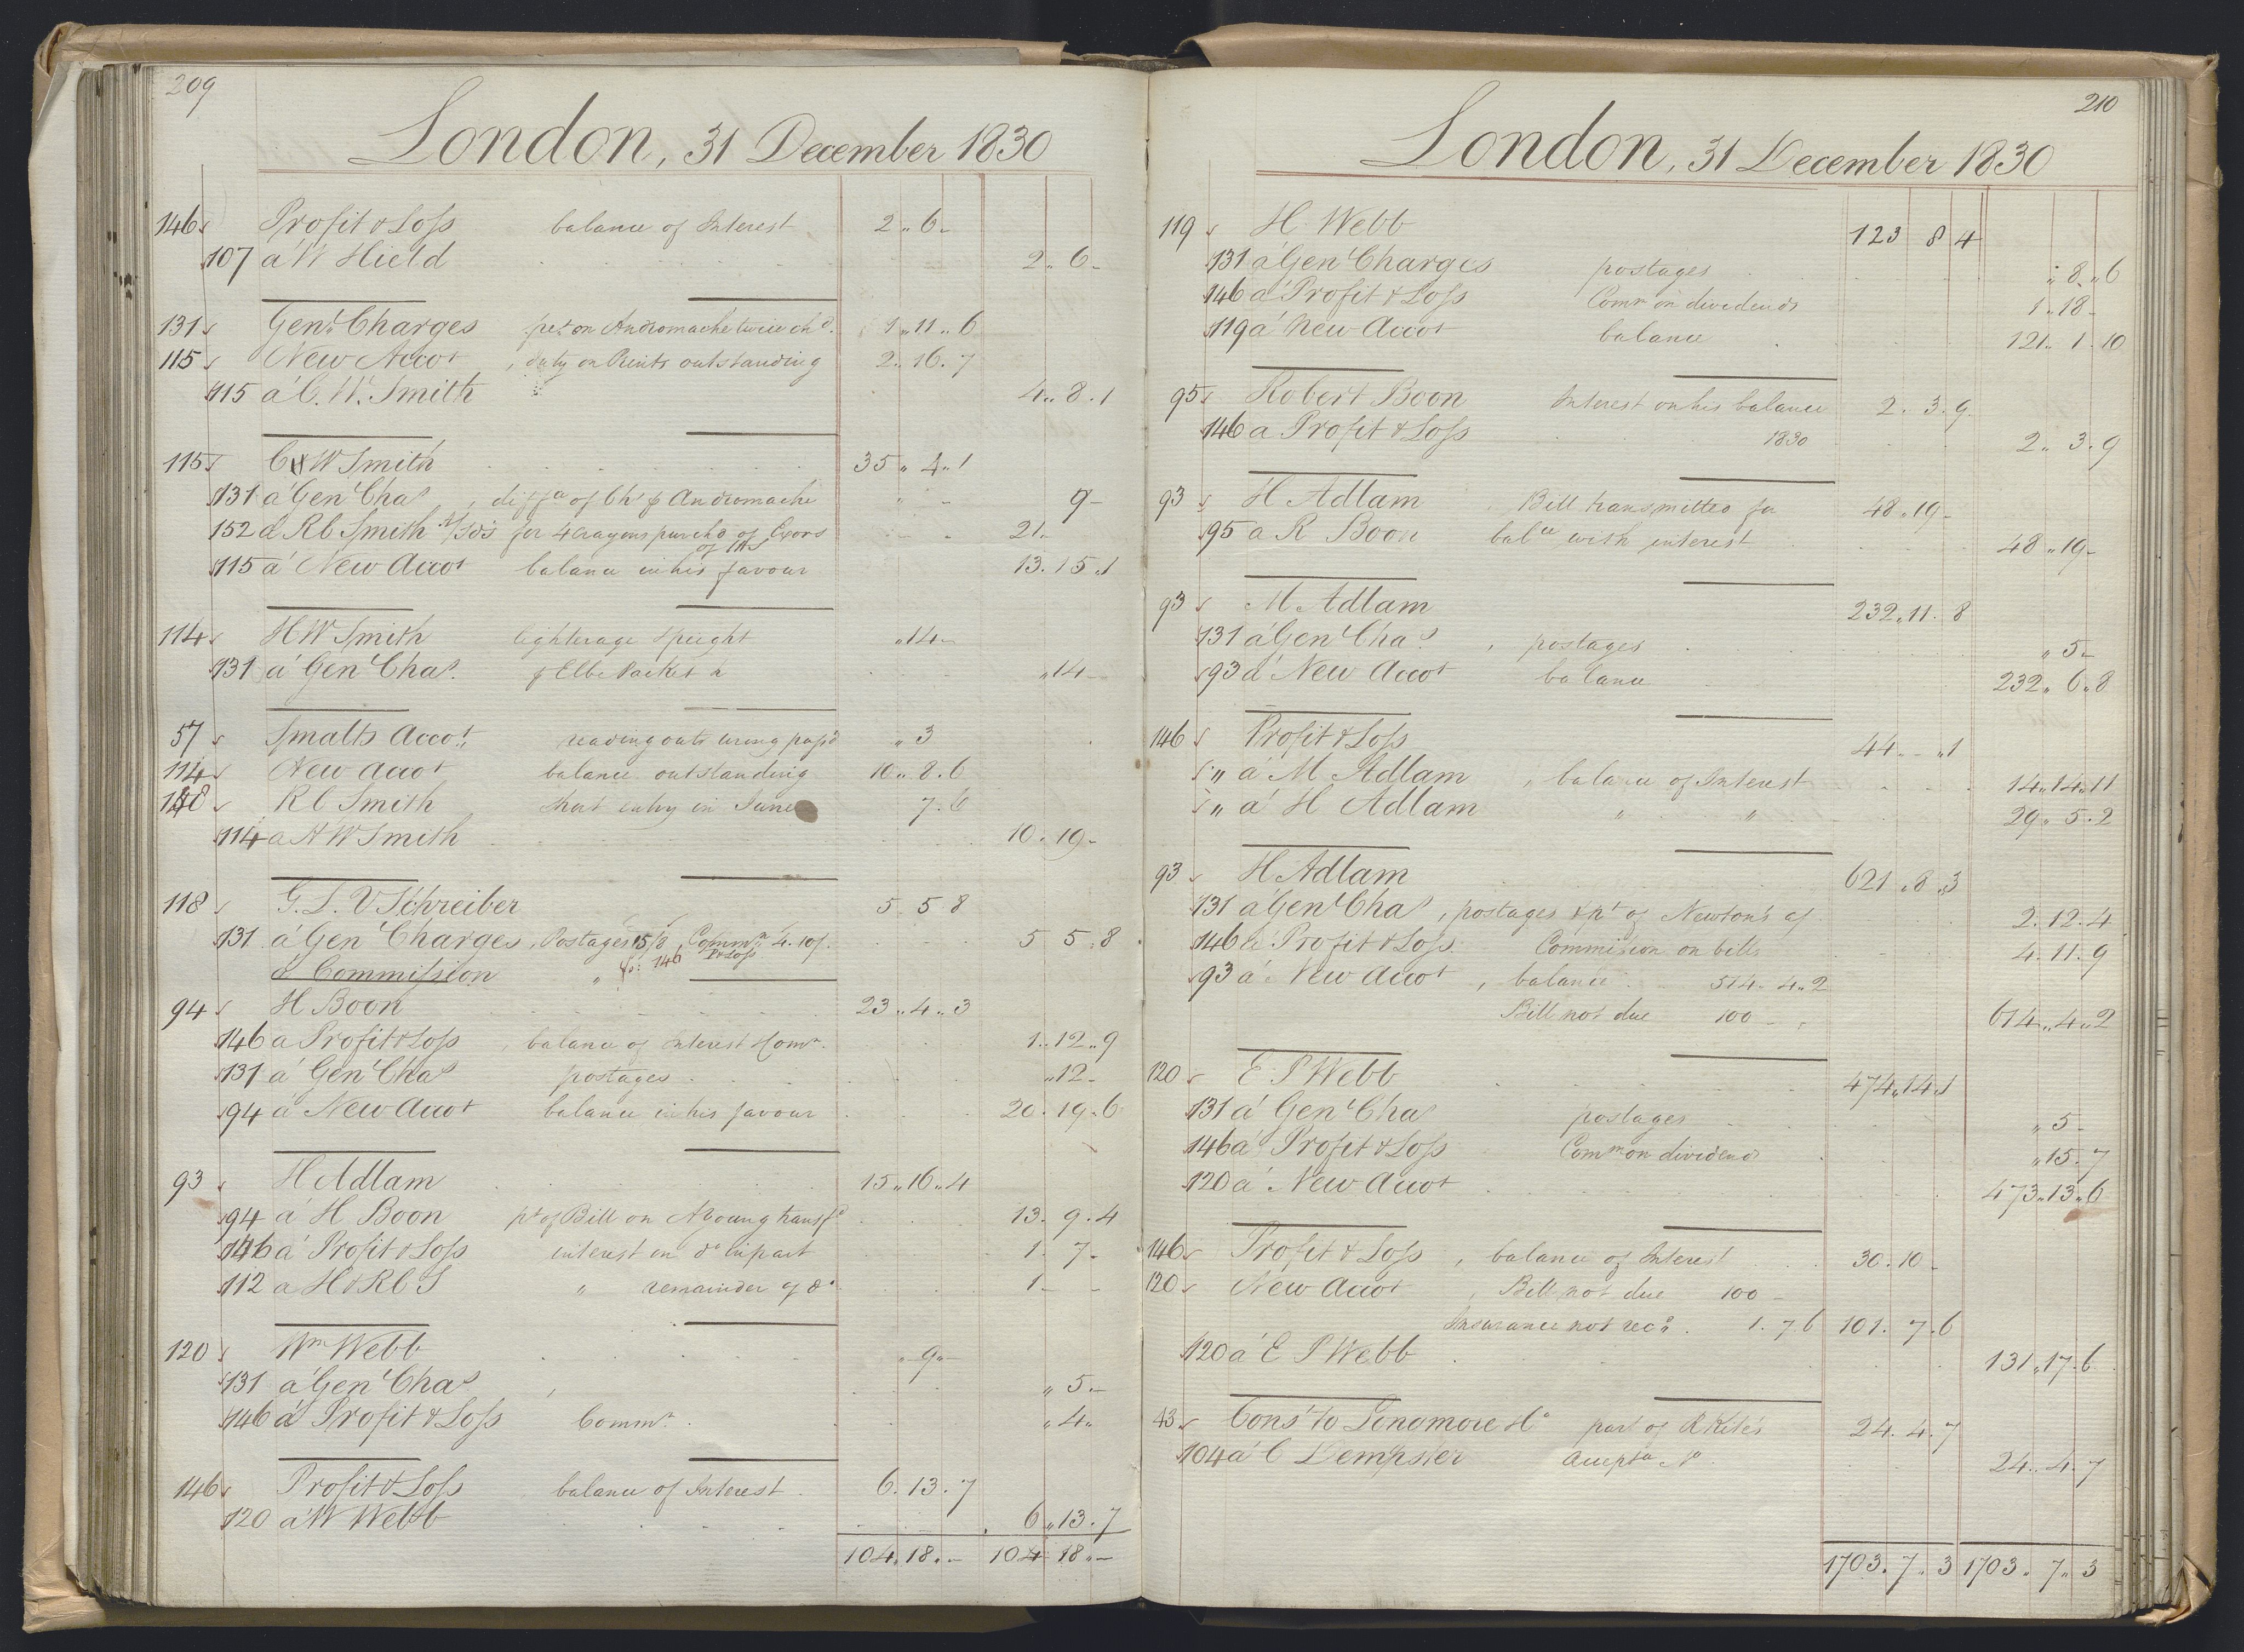 209
London, 31 December 1830
146 Profit & Loss balance of Interest 2 " 6 -
107 á W Hield 2 " 6 -
131 Gen.l Charges on Andromache twice ch.d 1 " 11 " 6
115 New Accot , duty on Prints outstanding 2 " 16 . 7
115 á C. W. Smith 4 " 8 . 1
115 C W Smith 35 " 4 " 1
131 á Gen.l Cha.s , diff.ce of Ch.s p Andromache 9 -
152 á R C Smith for 4 Crayons purch.d of Exors 21 -
of
115 á New Accot balance in his favour 13 . 15 " 1
114 H W Smith lighterage & freight " 14 -
131 á Gen.l Cha.s p Elbe Packet " 14 -
57 Smalts Accot. reading outs wrong pass'd " 3
114 New Accot balance outstanding 10 " 8 . 6
148 R C Smith short entry in June 7 . 6
114 a H W Smith 10 . 19 -
118 G. L. V Schreiber 5 5 8
131 á Gen.l Charges , Postages 15/8 , Comm.n 4.10/. 5 5 . 8
146 P & Loss
á Commission "
94 H Boon 23 " 4 " 3
146 a Profit & Loss , balance of Interest & Com.n 1 " 12 " 9
131 á Gen.l Cha.s postages " 12 -
94 á New Accot balance in his favour 20 . 19 . 6
93 H Adlam 15 " 16 " 4
94 á H Boon p.t of Bill on A Young transf.d 13 . 9 . 4
146 á Profit & Loss interest on d.o in part 1 . 7 -
112 a H & R C S " remainder of d.o 1 - -
120 W.m Webb " 9 " -
131 á Gen.l Cha.s , " 5 " -
146 á Profit & Loss Comm.n " 4 "
146 Profit & Loss balance of Interest 6 . 13 . 7
120 á W Webb 6 " 13 . 7
104 " 18 " - 104 18 " -
210
London, 31 December 1830
119 H Webb 123 8 4
131 á Gen.l Charges postages " 8 " 6
146 á Profit & Loss Com.n on dividends 1 " 18 -
119 á New Accot balance 121 " 1 . 10
95 Robert Boon Interest on his balance 2 . 3 . 9
146 a Profit & Loss 1830 2 " 3 . 9
93 H Adlam , Bill transmitted for 48 " 19 -
95 a R Boon bal.ce with interest 48 " 19 -
93 M Adlam 232 " 11 . 8
131 á Gen.l Cha.s , postages " 5 -
93 á New Accot balance 232 " 6 " 8
146 Profit & Loss 44 " - " 1
" á M Adlam , balance of Interest 14 " 14 " 11
" á H Adlam " " 29 " 5 . 2
93 H Adlam 621 " 8 " 3
131 á Gen.l Cha.s , postages & p.t of Newton's a/. 2 . 12 . 4
146 á Profit & Loss Commission on bills 4 . 11 . 9
93 á New Accot , balance 514 . 4 " 2
Bill not due 100 - , 614 " 4 " 2
120 E P Webb 474 " 14 " 1
131 á Gen.l Cha.s postages " 5 -
146 á Profit & Loss Com.n on dividend " 15 . 7
120 á New Accot 473 " 13 " 6
146 Profit & Loss , balance of Interest 30 . 10 -
120 New Accot , Bill not due 100 -
Insurance not rec.d . 1 . 7 . 6 101 . 7 . 6
120 á E P Webb 131 " 17 . 6
43 Cons.t to Longmore & C.o part of R Kite's 24 . 4 . 7
104 á C Dempster Accept.ce 24 . 4 . 7
1703 . 7 " 3 1703 " 7 " 3